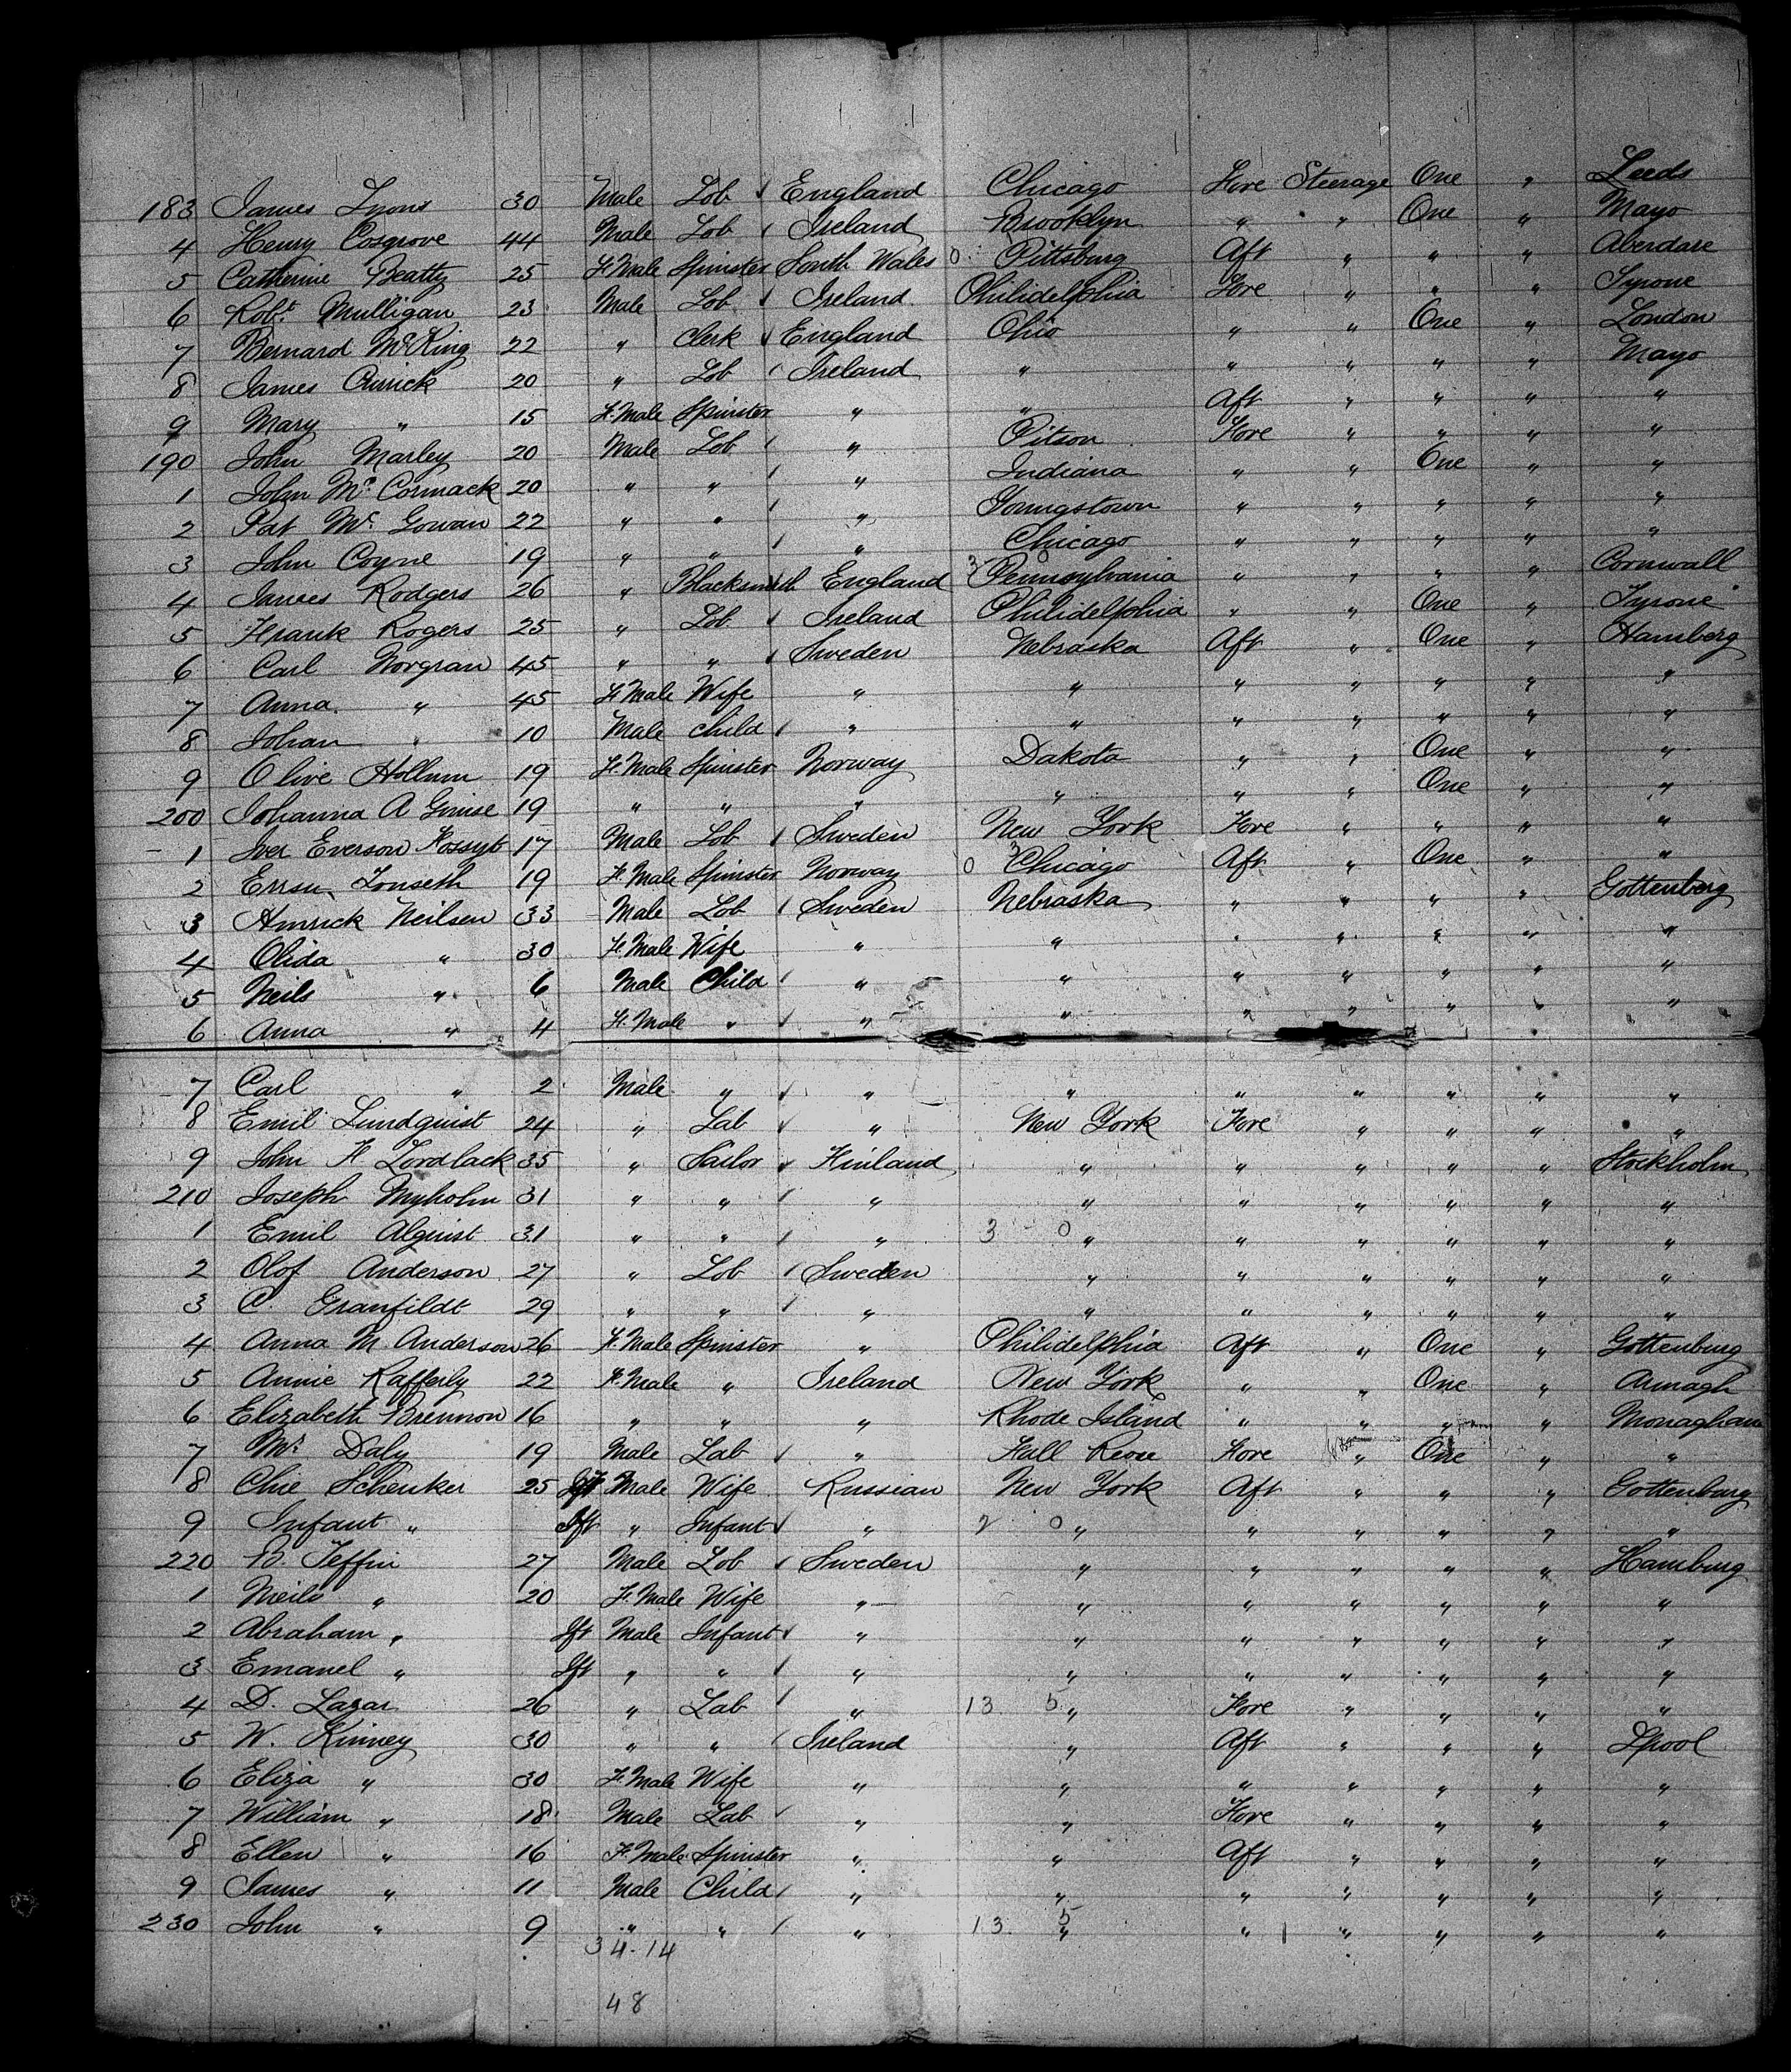 183 James Lyons 30 Male Lob ✓ England Chicago Fore Steerage One " Leeds
4 Henry Cosgrove 44 Male Lob ✓ Ireland Brooklyn " " One " Mayo
5 Catherine Beatty 25 F. Male Spinster South Wales 0 Pittsburg Aft " " " Aberdare
6 Robt. Mulligan 23 Male Lob ✓ Ireland Philidelphia Fore " " " Tyrone
7 Bernard McKing 22 " Clerk ✓ England Ohio " " One " London
8 James Currick 20 " Lob ✓ Ireland " " " " " Mayo
9 Mary " 15 F. Male Spinster " " Aft " " " "
190 John Marley 20 Male Lob ✓ " Pitson Fore " " " "
1 John McCormack 20 " " ✓ " Indiana " " One " "
2 Pat McGowan 22 " " ✓ " Youngstown " " " " "
3 John Coyne 19 " " ✓ " Chicago " " " " "
4 James Rodgers 26 " Blacksmith England 3 0 Pennsylvania " " " " Cornwall
5 Frank Rogers 25 " Lob ✓ Ireland Philidelphia " " One " Tyrone
6 Carl Norgran 45 " " ✓ Sweden Nebraska Aft " One " Hamberg
7 Anna " 45 F. Male Wife " " " " " " "
8 Johan " 10 Male child ✓ " " " " " " "
9 Olive Hollum 19 F. Male Spinster Norway Dakota " " One " "
200 Johanna A 19 " " " " " " One " "
1 Iver Everson 17 Male Lob ✓ Sweden New York Fore " " " "
2 Tonseth 19 F. Male Spinster Norway 0 3 Chicago Aft " One " "
3 Neilsen 33 Male Lob ✓ Sweden Nebraska " " " " Gottenberg
4 Olida " 30 F. Male Wife " " " " " " "
5 Neils " 6 Male Child ✓ " " " " " " "
6 Anna " 4 F. Male " ✓ " " " " " " "
7 Carl " 2 Male " ✓ " " " " " " "
8 Emil Lundquist 24 " Lab ✓ " New York Fore " " " "
9 John F Lordlack 35 " Sailor ✓ Finland " " " " " Stockholm
210 Joseph Myholm 31 " " ✓ " " " " " " "
1 Emil Alquist 31 " " ✓ " 3 0 " " " " " "
2 Olof Anderson 27 " Lob ✓ Sweden " " " " " "
3 C. Granfildt 29 " " ✓ " " " " " " "
4 Anna M. Anderson 26 F. Male Spinster " Philidelphia Aft " One " Gottenburg
5 Annie Rafferty 22 F. Male " Ireland New York " " One " Armagh
6 Elizabeth Brennon 16 " " " Rhode Island " " " " Monaghan
7 Daly 19 Male Lab ✓ " Fall River Fore " One " "
8 Chie Schenker 25 F. Male Wife Russian New York Aft " " " Gottenburg
9 Infant " Ift " Infant ✓ " 2 0 " " " " " "
220 Teffin 27 Male Lob ✓ Sweden " " " " " Hamburg
1 Neils " 20 F. Male Wife " " " " " " "
2 Abraham " Ift Male Infant ✓ " " " " " " "
3 Emanel " Ift " " ✓ " " " " " " "
4 D. Lazar 26 " Lab ✓ " 13. 5 " Fore " " " "
5 W. Kinney 30 " " ✓ Ireland " Aft " " " Lpool
6 Eliza " 30 F. Male Wife " " " " " " "
7 William " 18 Male Lab ✓ " " Fore " " " "
8 Ellen " 16 F. Male Spinster " " Aft " " " "
9 James " 11 Male Child ✓ " " " " " " "
230 John " 9 " " ✓ " 13. 5 " " " " " "
34-14
48